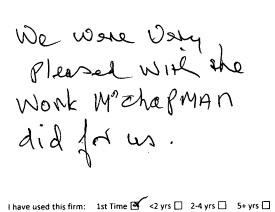 We were Very
Pleased with the
Work Mr Chapman
did for us.
I have used this firm: 1st Time ☑ <2 yrs ☐ 2-4 yrs ☐ 5+ yrs ☐